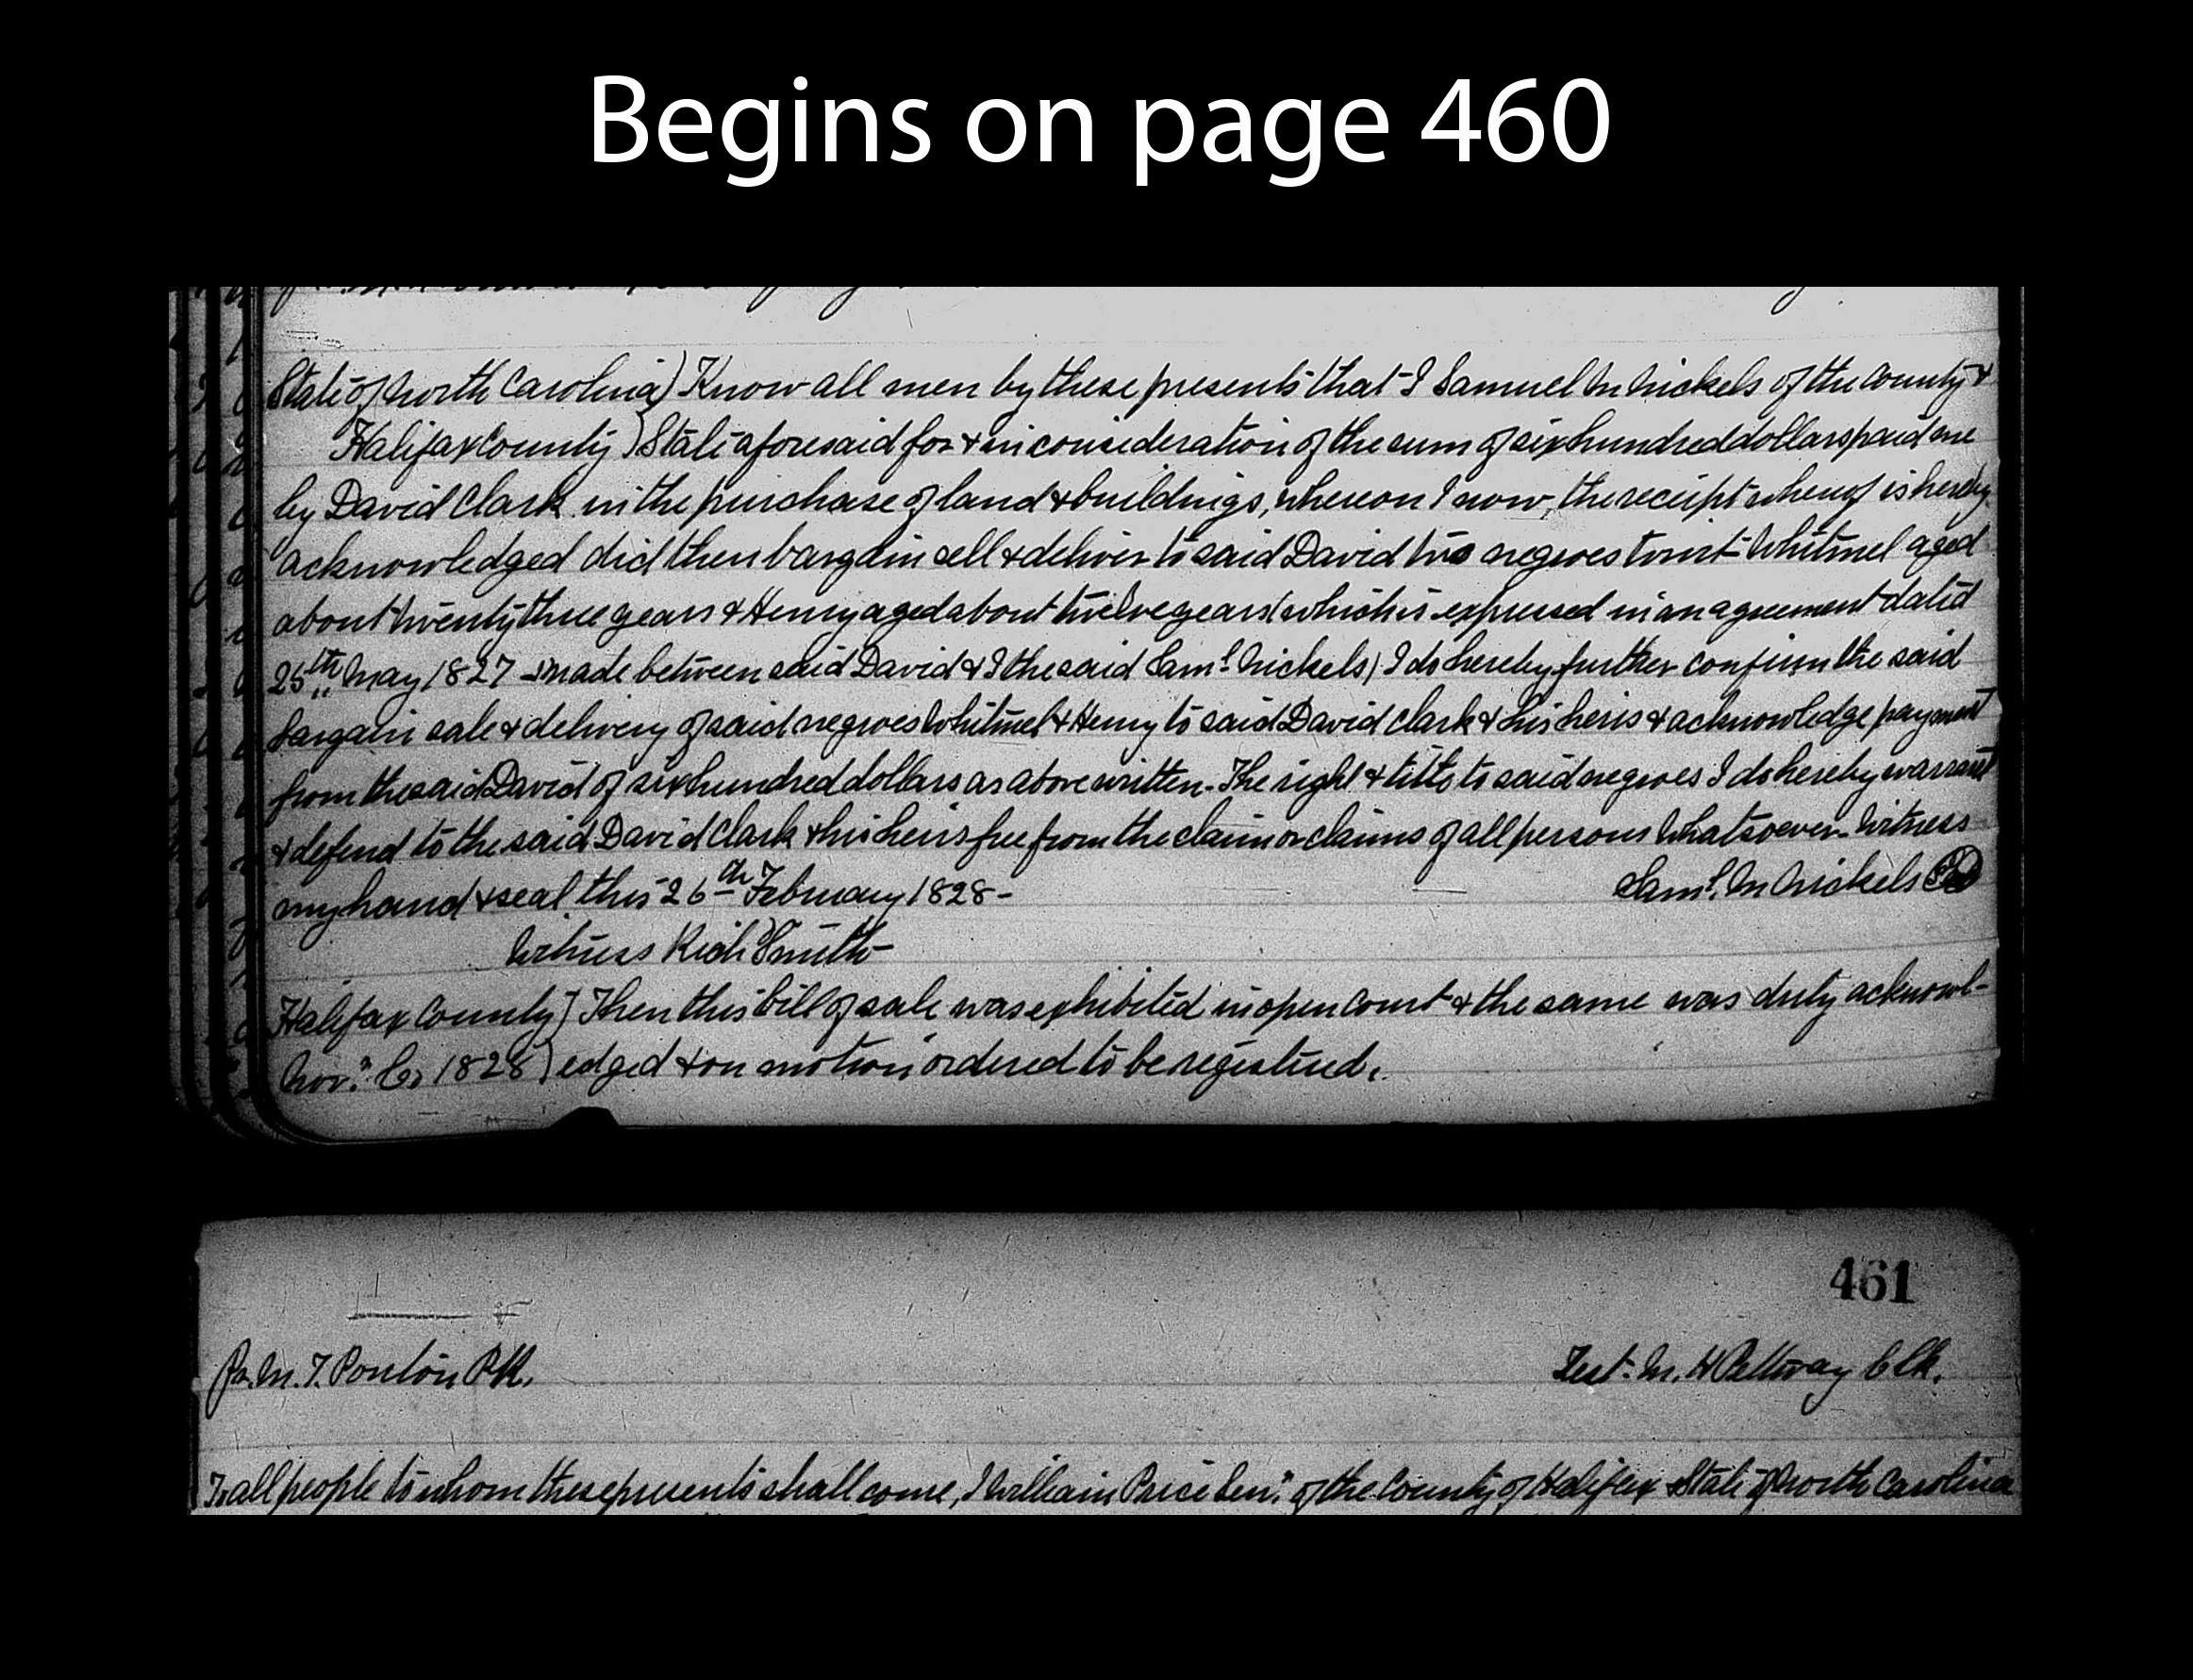 Begins on page 460
State of North Carolina) Know all men by these presents that I Samuel M Nickels of the County &
Halifax County ) State aforesaid for & in consideration of the sum of six hundred dollars paid me
by David Clark in the purchase of land & buildings, whereon I now, the receipt whereof is hereby
acknowledged did then bargain sell & deliver to said David two negroes towit Whitmel aged
about twenty three years & Henry aged about twelve years (which is expressed in an agreement dated
25th May 1827 made between said David & I the said Saml Nickels) I do hereby further confirm the said
bargain sale & delivery of said negroes Whitmel & Henry to said David Clark & his heirs & acknowledge payment
from the said David of six hundred dollars as above written - The right & title to said negroes I do hereby warrant
& defend to the said David Clark & his heirs free from the claim or claims of all persons whatsoever - Witness
my hand & seal this 26th February 1828 - Saml. M Nickels
Witness Rich Smith
Halifax County) Then this bill of sale was exhibited in open Court & the same was duly acknowl-
Nov. Co 1828) edged & on motion ordered to be registered.
461
Pr. M. T. Ponton P.R. Test. M. H Pettway Clk.
To all people to whom these presents shall come, I William Price Sen. of the County of Halifax & State of North Carolina